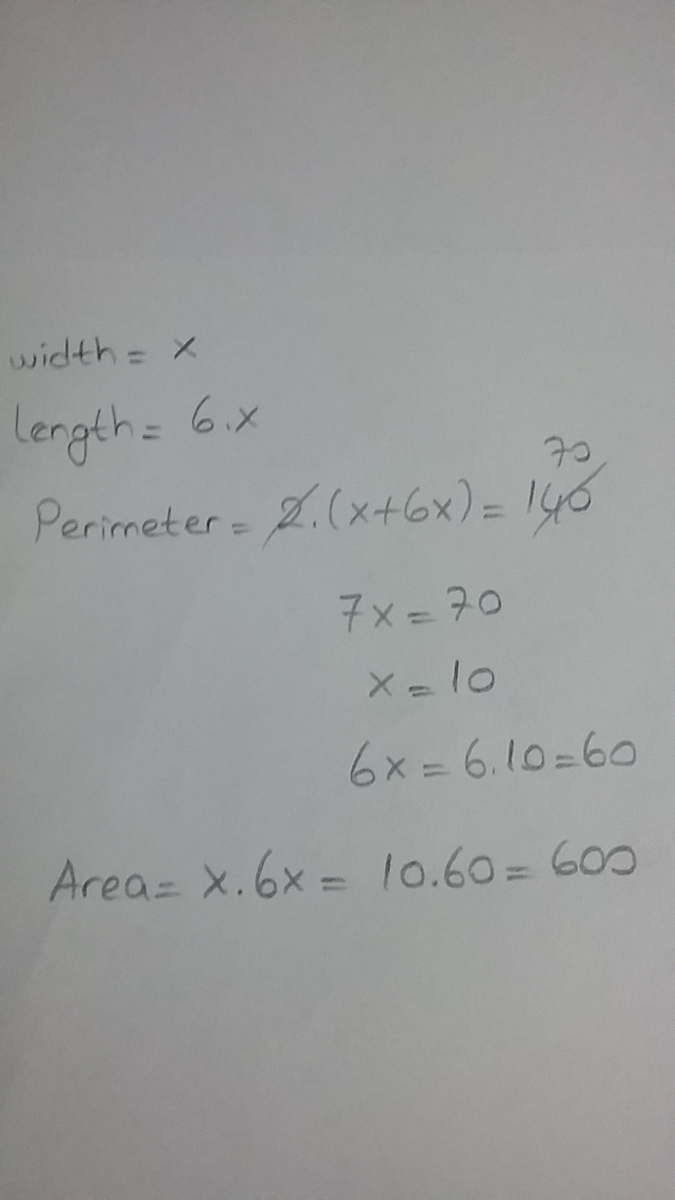 width = x
length = 6.x
70
Perimeter = 2.(x+6x) = 140
7x = 70
x = 10
6x = 6.10 = 60
Area = x.6x = 10.60 = 600